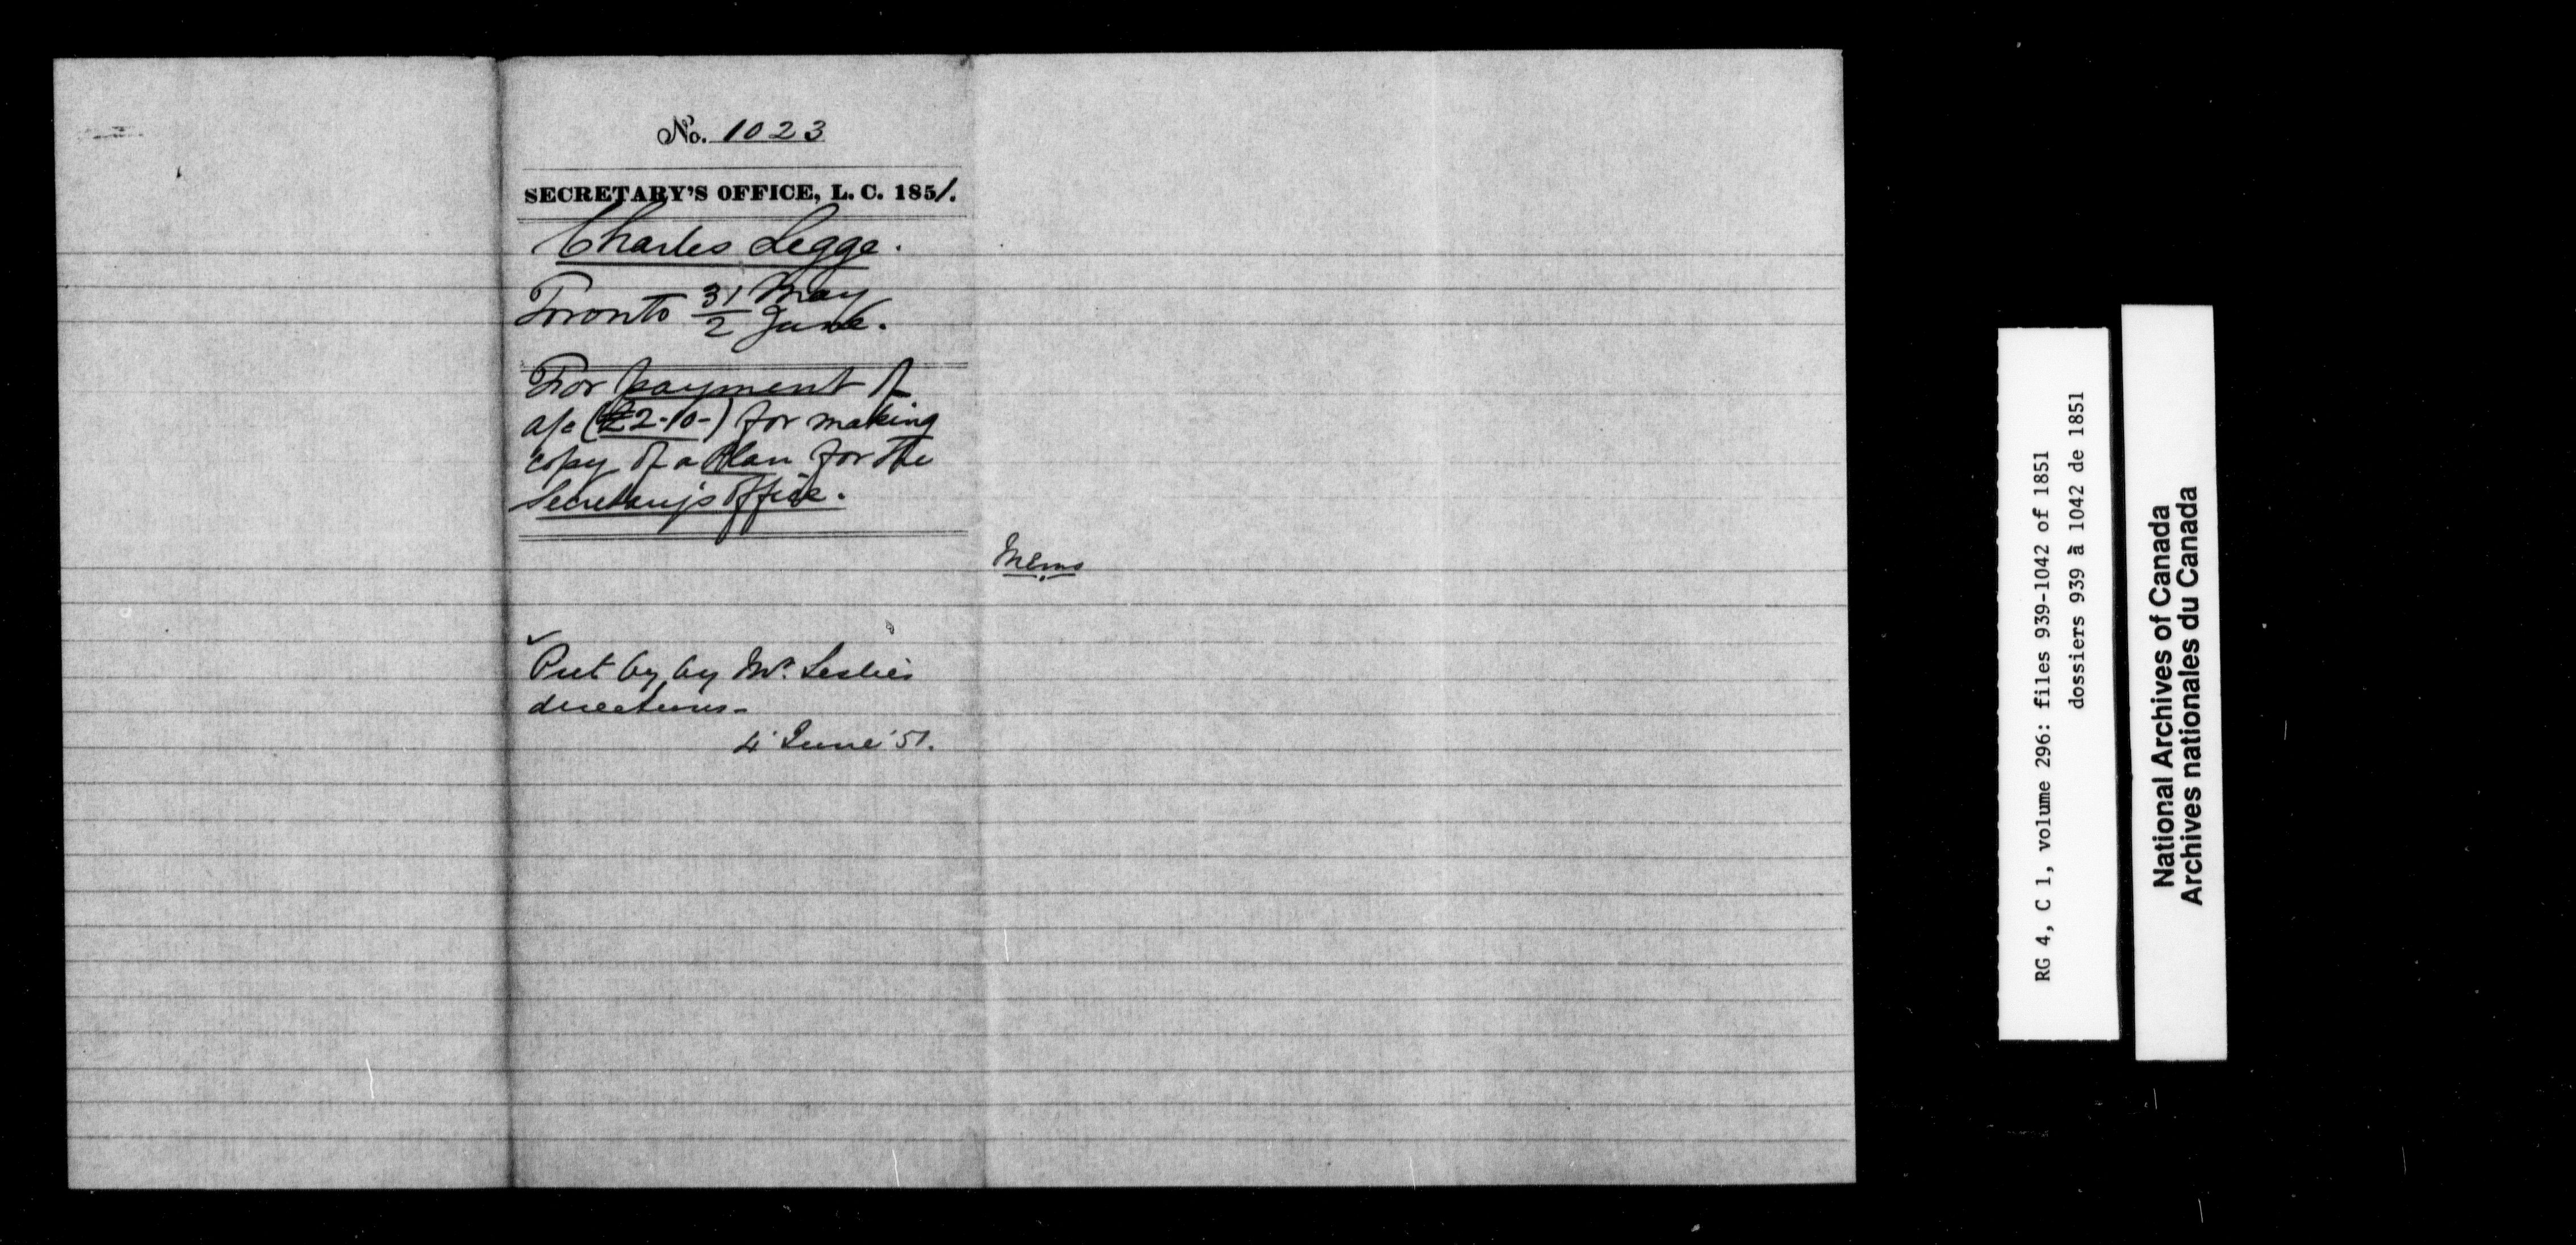 No. 1023
SECRETARY'S OFFICE, L. C. 1851.
Charles Legge.
Toronto 31 May
2 June.
For payment of
a/c (£2-10-) for making
copy of a Plan for the
Secretary's Office.
Memo
Put by by Mr. Leslie's
directions-
4 June '51.
RG 4, C 1, volume 296: files 939-1042 of 1851
dossiers 939 à 1042 de 1851
National Archives of Canada
Archives nationales du Canada